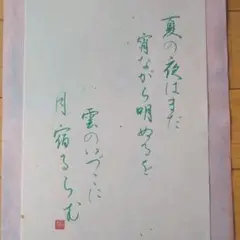 夏の夜はまだ
宵ながら明ぬるを
雲のいづこに
月宿るらむ